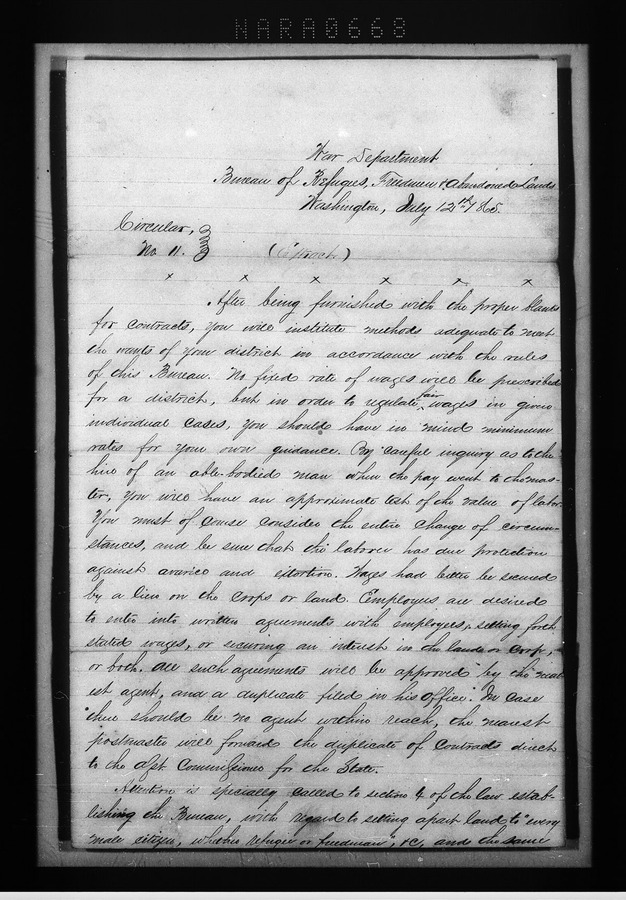 NARA0668
War Department
Bureau of Refugees, Freedmen & Abandoned Lands
Washington, July 12th 1865.
Circular,
No 11. (Extract)
x x x x x x
After being furnished with the proper blanks
for contracts, you will institute methods adequate to meet
the wants of your district in accordance with the rules
of this Bureau. No fixed rate of wages will be prescribed
for a district, but in order to regulate fair wages in given
individual cases, you should have in mind minimum
rates for your own guidance. By careful inquiry as to the
hire of an able-bodied man when the pay went to the mas-
ter, you will have an approximate test of the value of labor.
You must of course consider the entire change of circum-
stances, and be sure that the laborer has due protection
against avarice and extortion. Wages had better be secured
by a lien on the crops or land. Employers are desired
to enter into written agreements with employees, setting forth
stated wages, or securing an interest in the land or crop,
or both. All such agreements will be approved by the near-
est agent, and a duplicate filed in his office. In case
there should be no agent within reach, the nearest
postmaster will forward the duplicate of contracts direct
to the Asst. Commissioner for the State.
Attention is specially called to section 4 of the law estab-
lishing the Bureau, with regard to setting apart land to "every
male citizen, whether refugee or freedman", &c, and the same